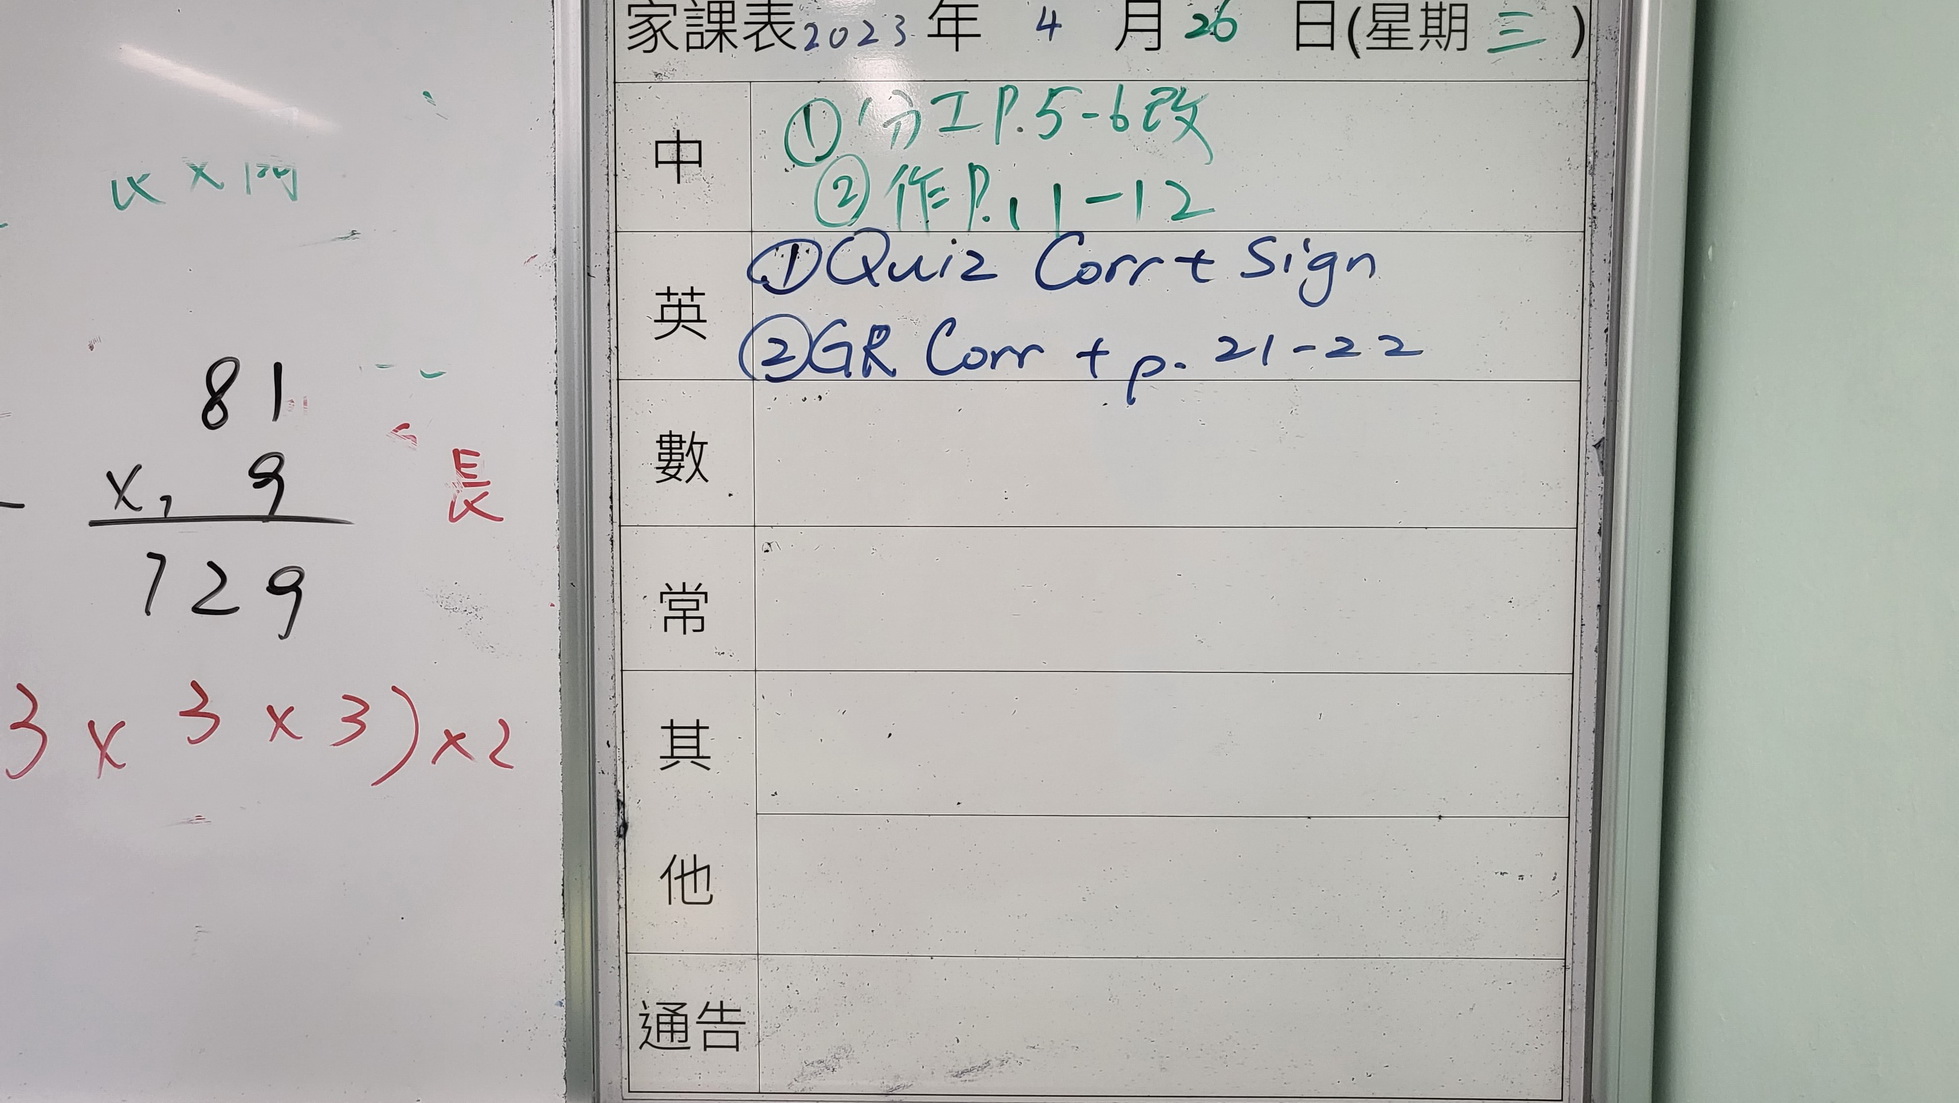 家課表2023年 4 月26 日(星期三)
中
①分工P.5-6改
②作P.11-12
英
①Quiz Corr + Sign
②GR Corr + p. 21-22
數
常
其
他
通告
81
x, 9
729
長
3 x 3 x 3) x 2